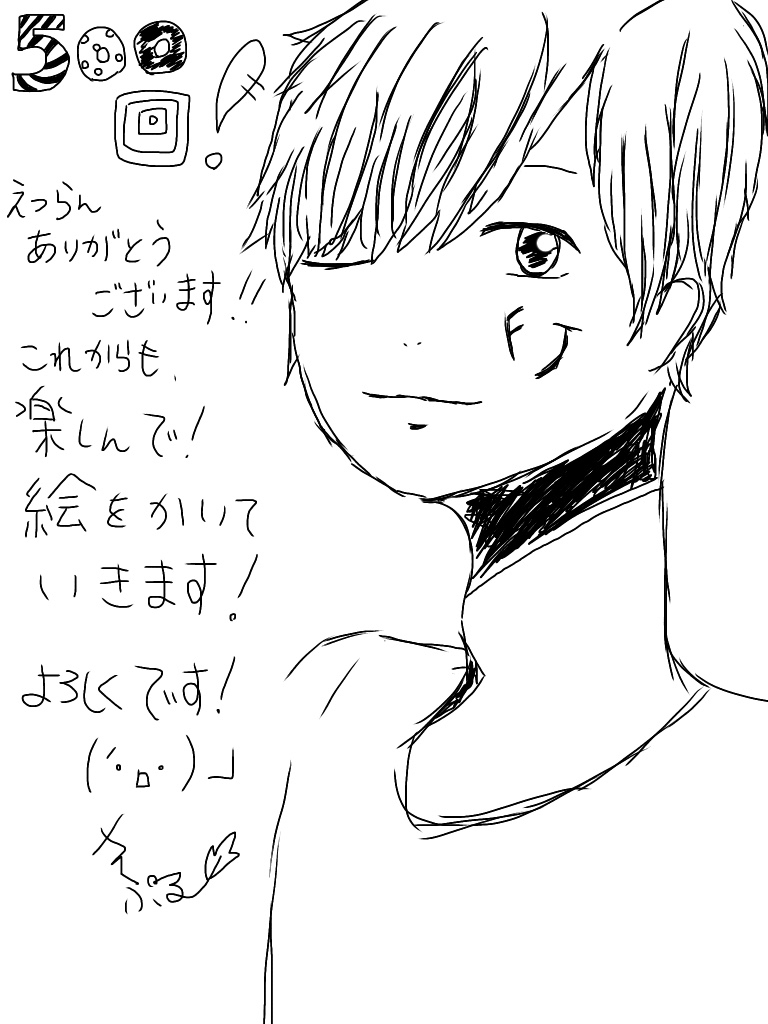 500
回!
えつらん
ありがとう
ございます!!
これからも、
楽しんで!
絵をかいて
いきます!
よろしくです!
(´・□・)」